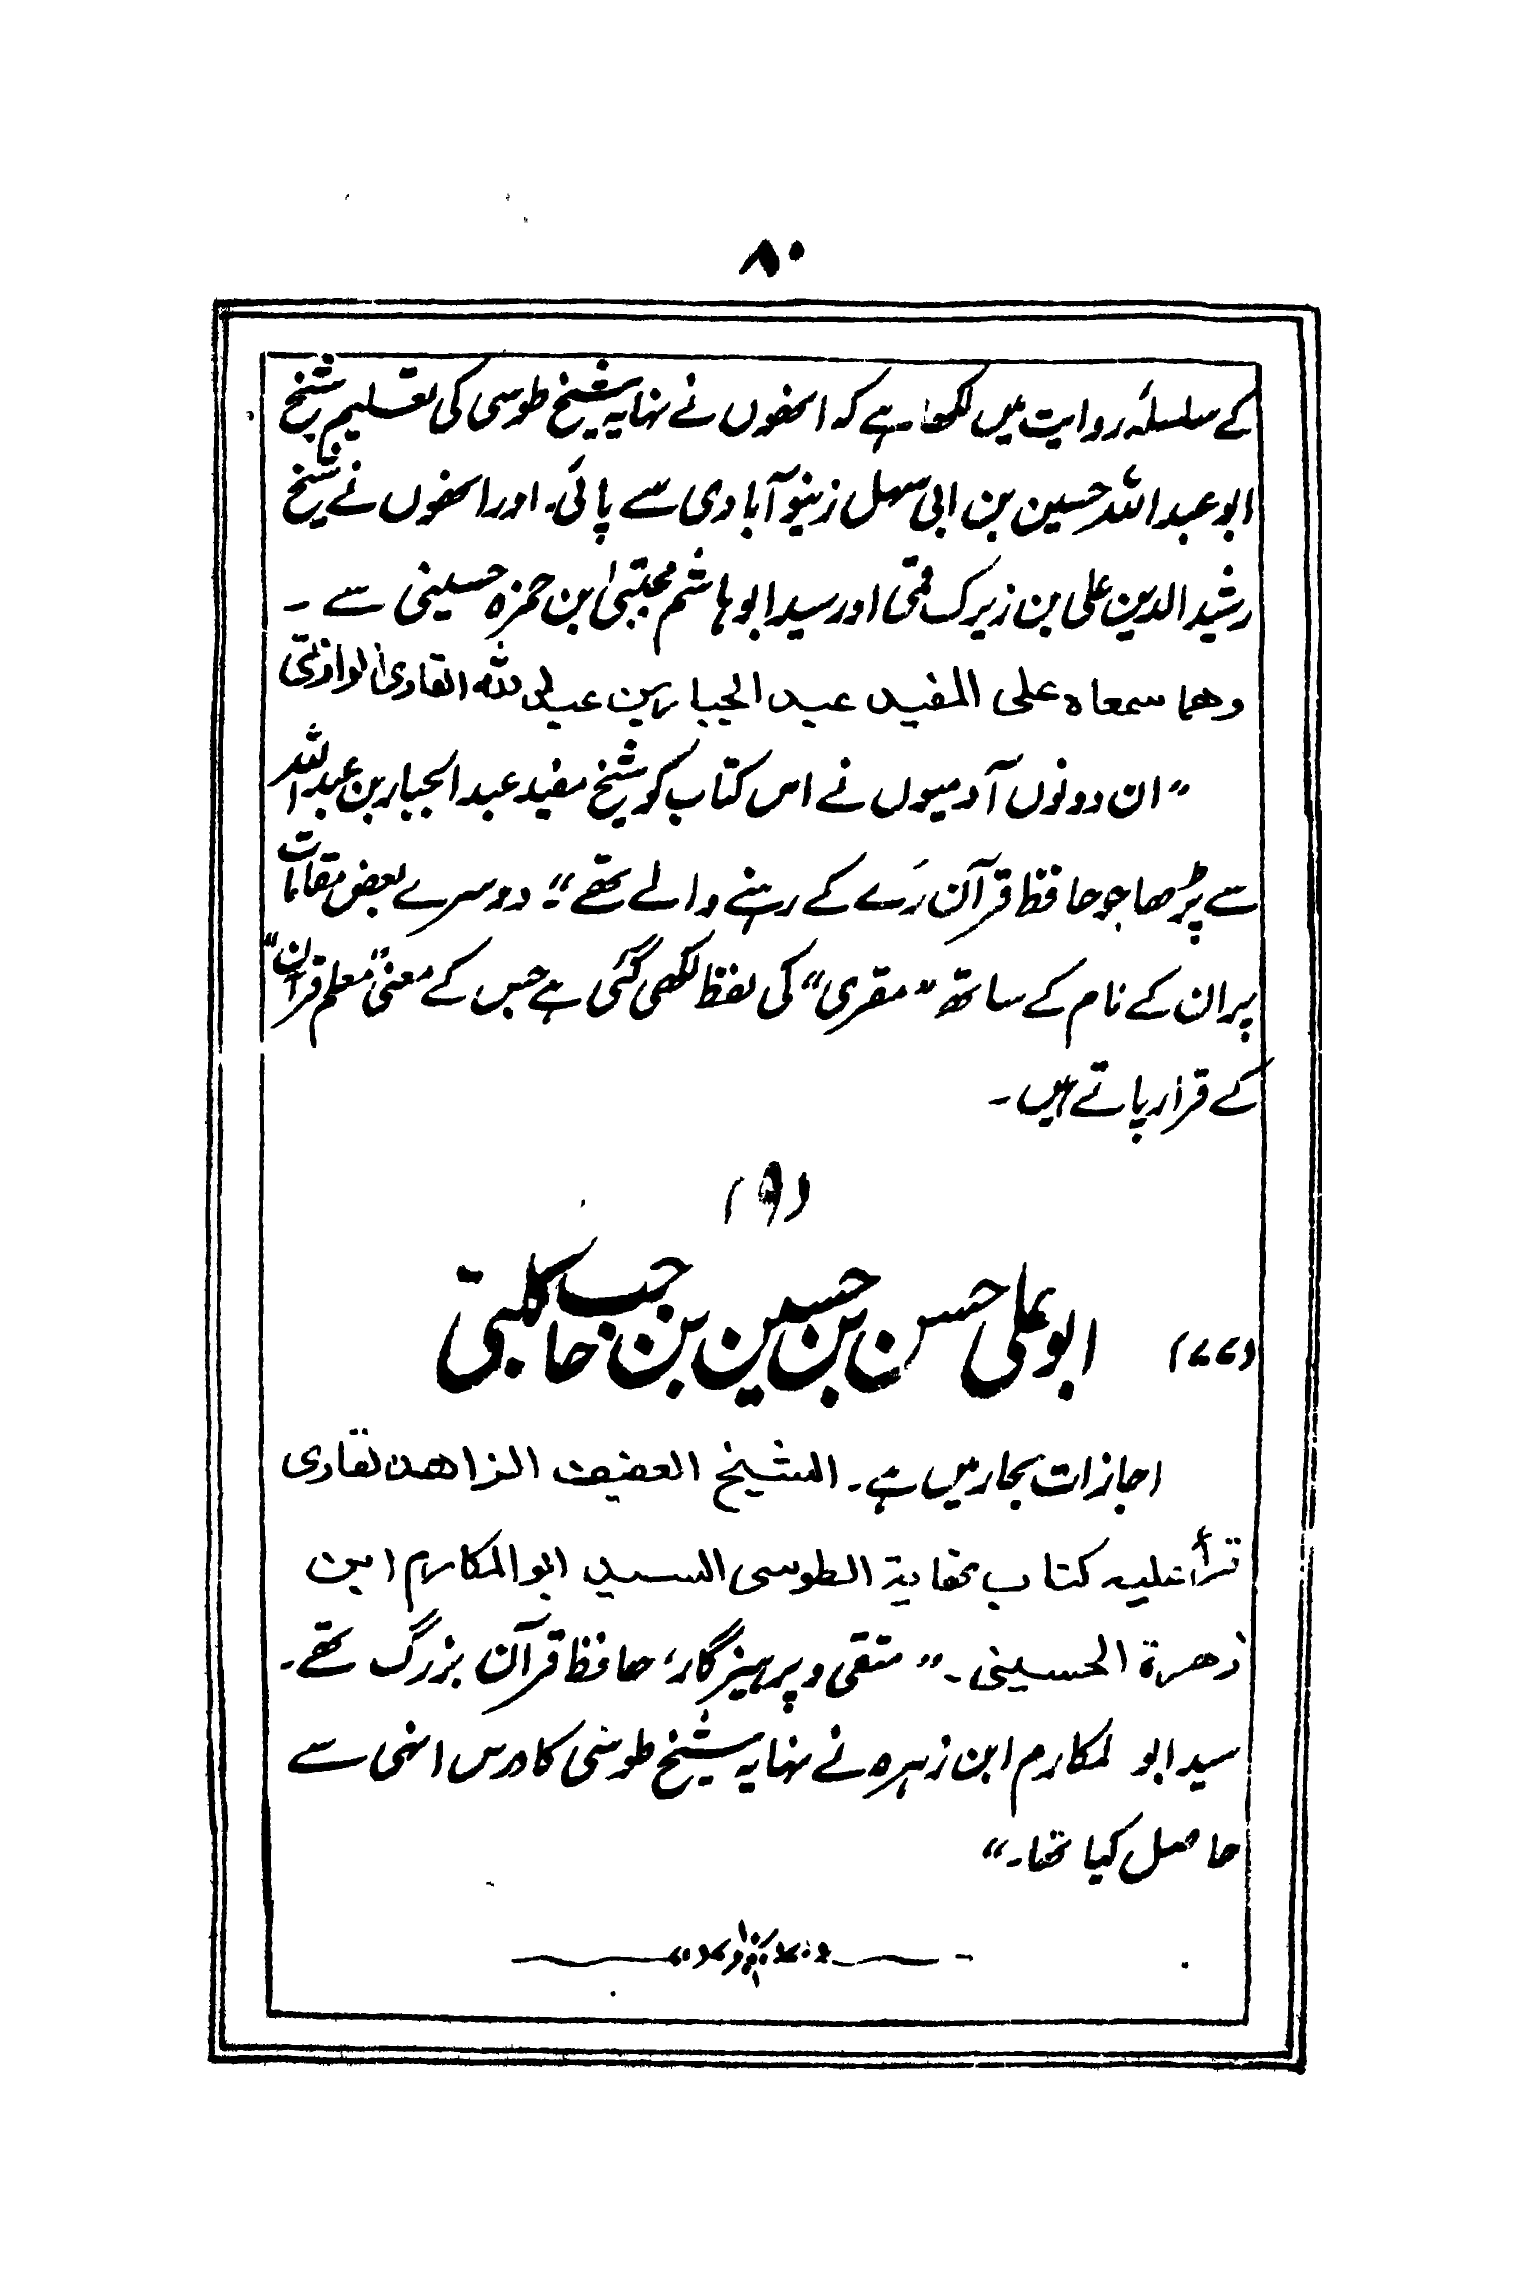 ۸۰
کے سلسلۂ روایت میں لکھا ہے کہ انھوں نے نہایہ شیخ طوسی کی تعلیم شیخ
ابو عبد اللہ حسین بن ابی سہل زینو آبادی سے پائی۔ اور انھوں نے شیخ
رشید الدین علی بن زیرک قمی اور سید ابو ہاشم مجتبیٰ بن حمزہ حسینی سے ۔
وهما سمعاه علی المفید عبد الجبار بن عبد الله القاری الوازنی
” ان دونوں آدمیوں نے اس کتاب کو شیخ مفید عبد الجبار بن عبد اللہ
سے پڑھا جو حافظ قرآن رَے کے رہنے والے تھے “۔ دوسرے بعض مقامات
پر ان کے نام کے ساتھ ” مقری “ کی لفظ لکھی گئی ہے جس کے معنی ” معلم قرآن “
کے قرار پاتے ہیں ۔
(۹)
(۷۷) ابو علی حسن بن حسین بن حاجب کلبتی
اجازات بحار میں ہے ۔ الشیخ العفیف الزاهد القاری
قرأ علیه کتاب نهایة الطوسی السید ابو المکارم ابن
زهرة الحسینی ۔ ” متقی و پرہیزگار، حافظ قرآن بزرگ تھے ۔
سید ابو لمکارم ابن زہرہ نے نہایہ شیخ طوسی کا درس انہی سے
حاصل کیا تھا ۔ “